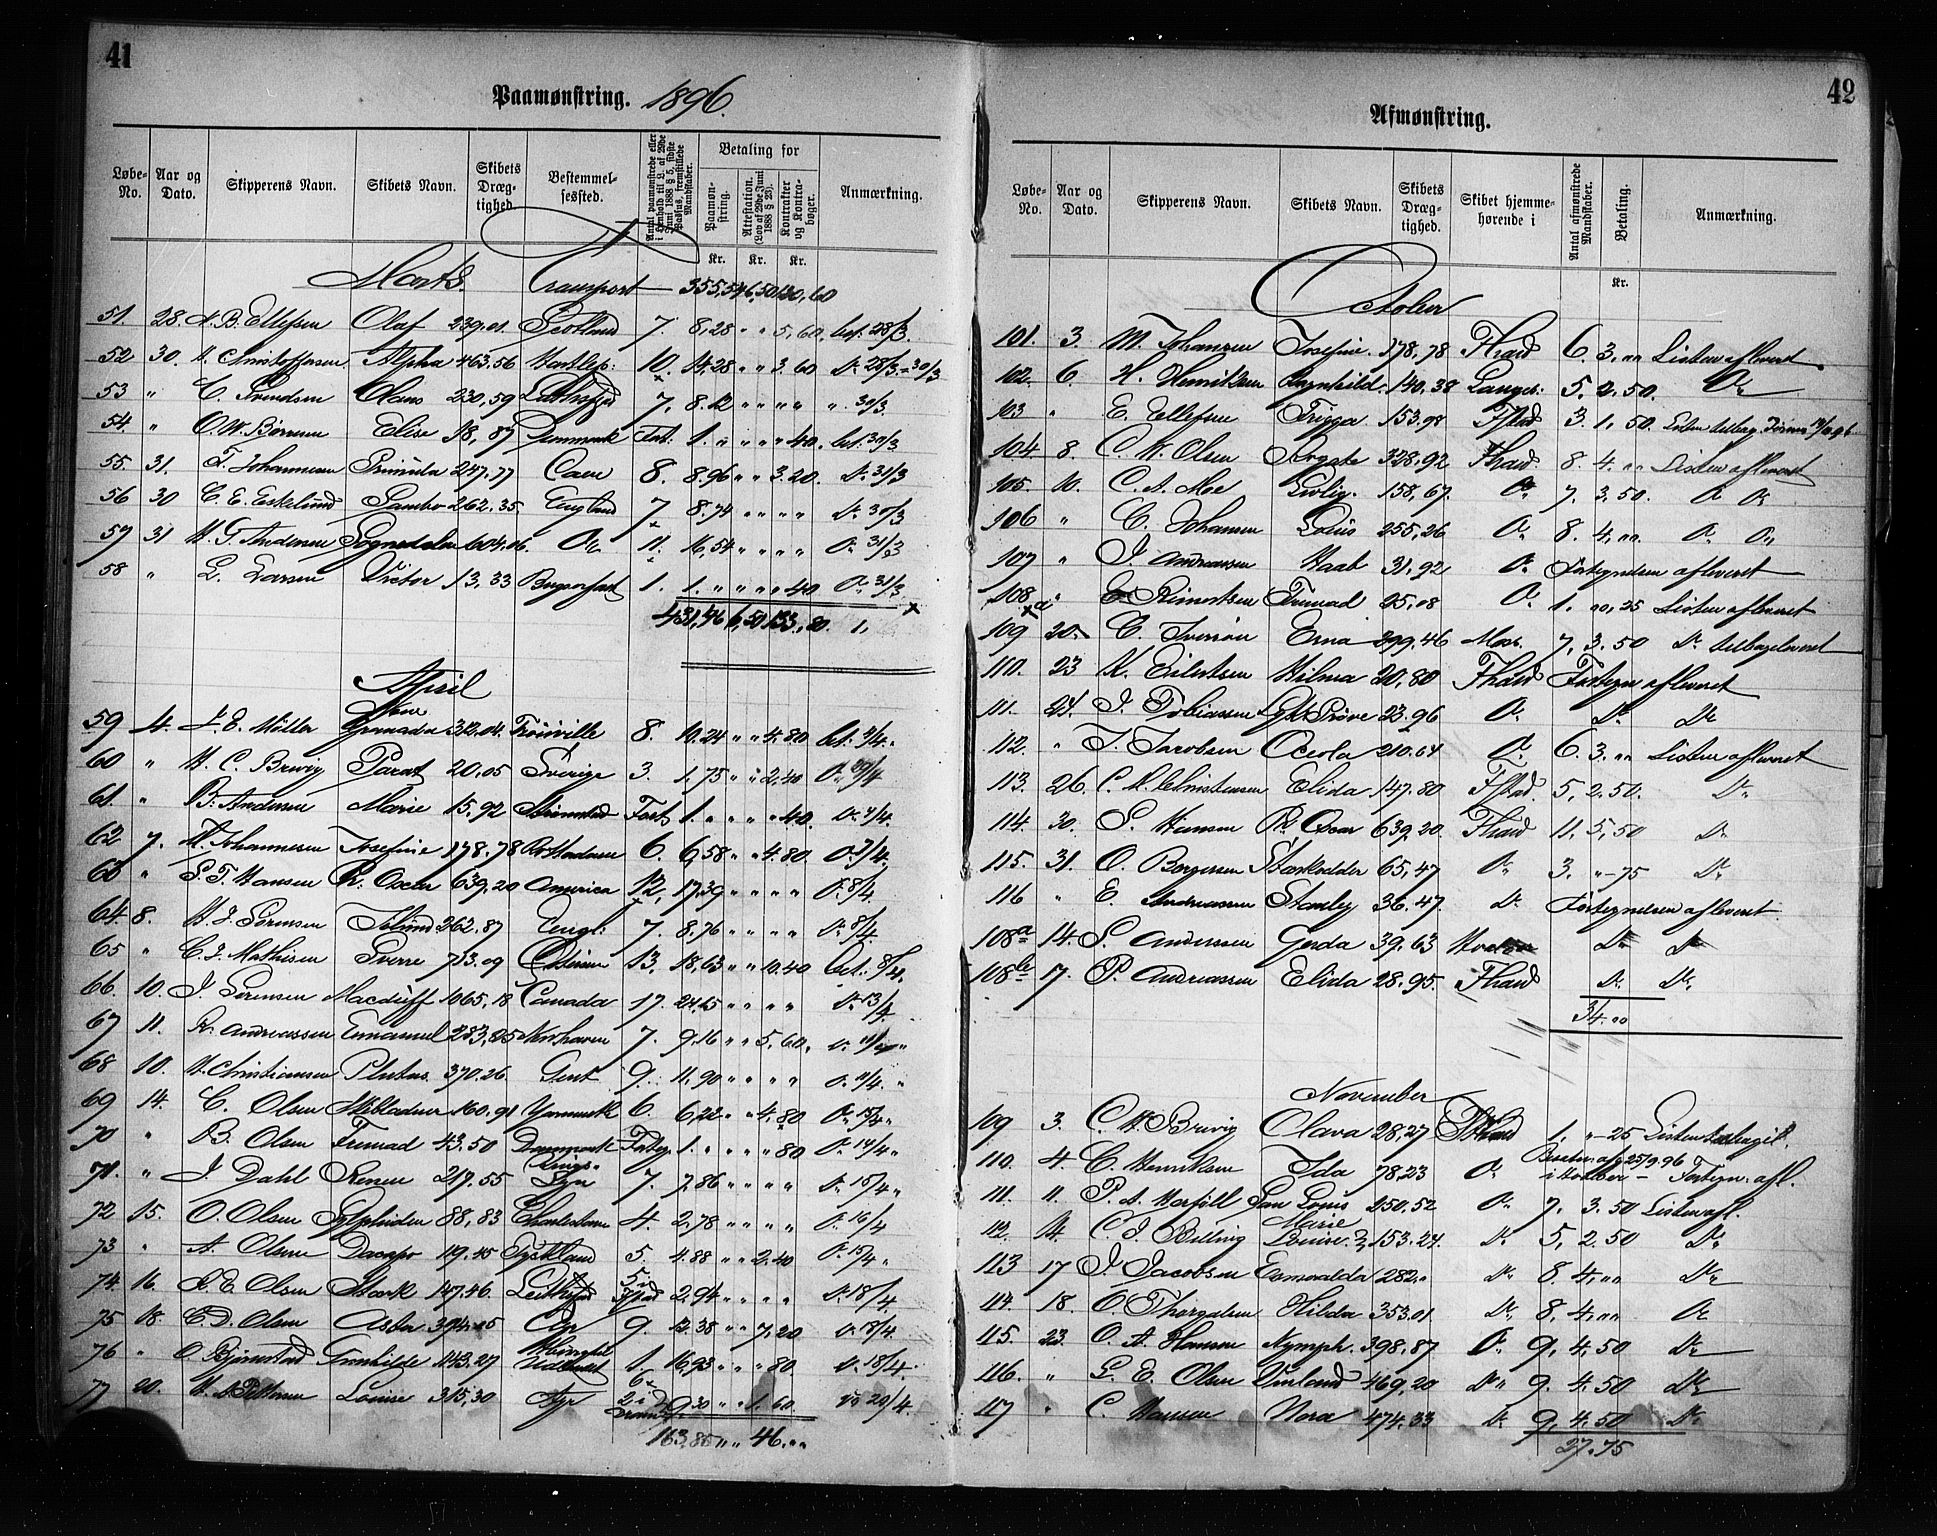 41
Paamønstring. 1896.
Løbe-No. Aar og Dato. Skipperens Navn. Skibets Navn. Skibets Dræg-tighed. Bestemmel-sessted. Antal paamønstrede eller i Henhold til L. af 29de Juni 1888 § 5, sidste Passus, fremstillede Mandskaber. Betaling for Paamøn-string. Attestation. (Lov af 29de Juni 1888 § 23). Kontrakter og Kontra-bøger. Anmærkning.
Kr. Kr. Kr.
Marts. Transport 355,54 6,50 130,60
51. 28. A. B. Ellefsen Olaf 239.01 Scotland 7. 8,28 " " 5,60 bet. 28/3.
52 30. A. Christoffersen Alpha 463.56 Hartlep: 10. 14,28 " " 3.60 Do 28/3 - 30/3
53 " C. Svendsen Claus 230,59 7. 8.12 " " " " " 30/3
54. " O. W. Børresen Elise 18,87 Danmark Fort. 1. " " " " 40. bet. 30/3
55. 31. F. Johannesen Primula 247.77 Caen 8. 8.96 " " 3.20. Do 31/3
56 30 C. E. Eskelund Sambo 262.35 England 7 8.74 " " " " Do 30/3
57 31 A. T. Andersen Sognedalen 604.06. Do 11. 16,54 " " " " Do 31/3
58 " L. Larsen Victor 13,33 Bugserfart 1. 1. " " " " 40 Do 31/3
431,46 6,50 133,80. 1,
April
59 4. J. E. Müller Grenada 312.04. Trouville 8. 10.24 " " 4.80 bet. 4/4.
60 " A. C. Brevig Parat 20.05 Sverige 3. 1.75 " " 2.40
61. " B. Andersen Marie 15.92 Strømstad Fort 1. " " " " 40. Do 4/4.
62 7. M. Johannesen Josefine 178.78 Rotterdam 6. 6,58 " " 4.80 Do 7/4.
63 " S. T. Hansen R. Oscar 639,20 America 12, 17,39 " " " " Do 8/4.
64. 8. A. J. Sørensen Island 262.87 Engl: 7. 8,76 " " " " Do 8/4.
65 " C. J. Mathisen Sverre 713.09 13. 18,63 " " 10.40 bet. 8/4.
66. 10. J. Sørensen Macduff 1065,18 Canada 17. " " " " Do 13/4
67 11. R. Andreassen Emanuel 283,05 Norhaven 7. 9,16 " " 5,60.
68 10. A. Christiansen Plutus 370.26. Gent 9. 11,90 " " " " Do 11/4. "
69 14. C. Olsen Skibladner 160.91 Yarmouth 6. 6,22 " " 4,80 Do 15/4 "
70 " B. Olsen Fremad 43.50 Danmark Fortg. 1. " " " " 80 Do 14/4 "
71. " J. Dahl Svenen 217.55 Kings-Lyn 7. 7,86 " " " " Do 15/4 "
72 15. O. Olsen Sylphiden 88,83 Charlestown 4. 2,78 " " " " Do 16/4
73 " A. Olsen Dacapo 119.45 Tyskland 5. 4.88 " " 2,40 Do 15/4 "
74. 16. E. Olsen Stærk 147.46. Leithfjord 5 i Fstad 2,94 " " " " Do 18/4.
75 18. C. D. Olsen Aster 394.05 Do 9. 12.38 " " 7,20 Do 18/4
76 " O. Bjørnstad Gunhilde 1143.27 Udlandet 1. 16,93 " " " 80. Do 18/4.
77 20. A. Pettersen Louise 315,30 Ayr 6 2 i Dram. 9,30 " " 1,60 Do 20/4.
163,85 " " 46. " "
42
Afmønstring.
Løbe-No. Aar og Dato. Skipperens Navn. Skibets Navn. Skibets Dræg-tighed. Skibet hjemme-hørende i Antal afmønstrede Mandskaber. Betaling. Anmærkning.
Kr.
October
101. 3. M. Johansen Josefine. 178,78 Fhald 6. 3. " " Listen afleveret.
102. 6. H. Henriksen Ragnhild. 140.38 Langes: 5. 2.50. Do
103 " E. Ellefsen Trygga 153.98 Fstad 3. 1,50.
104 8. C. W. Olsen 328.92 Fhald 8. 4. " " Listen afleveret
105. 10. C. A. Moe Livlig. 158,67. Do 7. 3.50. Do Do
106 " C. Johansen Louis 255,26 Do 8. 4, " " Do Do
107 " J. Andreassen Haab 31.92 Do Fortegnelsen afleveret
108. " E. Rimertsen Fremad 25.08 Do 1. " ",25 Listen afleveret
109 20. C. Iversen Erna 299.46 Moss. 7, 3.50 Do tilbageleveret
110. 23 K. Eilertsen Wilma 20,80 Fhald Fortegn afleveret
111. 24. J. Tobiassen 23.96 Do Do Do
112. " T. Jacobsen Oceola 210.64 Do 6. 3. " " Listen afleveret
113. 26. C. A. Christensen Elida 147.80 Fstad. 5, 2.50. Do
114. 30. S. Hansen R. Oscar 639,20. Fhald 11. 5,50 Do
115. 31. O. Børgersen Stærkodder 65,47 Do 3. " - 75 Do
116 " E. Andreassen Stanley 36.47. Do Fortegnelsen afleveret
108a 14. S. Anderssen Gerda 39,63 Do Do
108b 17. P. Andreassen Elida 28.95. Fhald Do Do
34. " "
November
109 3. C. A. Brevig Olava 28,27 Fhald 1, " - 25
110. 4. C. Henriksen Ida 78,23 Do Fortegn. afl.
111. 11. P. A. Marfill San Louis 250.52 Do 7. 3.50 Listen afl.
112. 14. C. J. Billing Marie Louise. 153.24. Do 5, 2.50 Do
113 17 J. Jacobsen Esmeralda 282. " Do 8. 4, " " Do
114. 18. O. Thorgersen Hilda 353.01 Do 8, 4. " " Do
115. 23. O. A. Hansen Nymph. 398,87 Do 9, 4,50 Do
116. " L. E. Olsen Vinland 469,20 Do 9. 4.50 Do
117 " C. Hansen Nora 474.33 Do 9, 4.50 Do
27.75